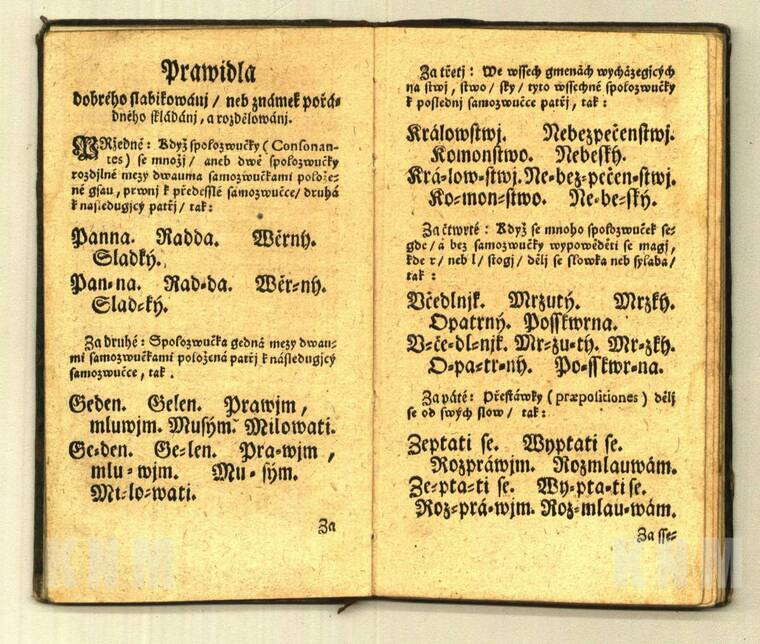 Prawidla
dobrého slabikowánj / neb známek pořá⸗
dného skládánj, a rozdělowánj.
PRžedně: Když spoluzwučky (Consonan-
tes) se množj / aneb dwě spoluzwučky
rozdjlné mezy dwauma samozwučkami polože⸗
né gsau, prwnj k předesslé samozwučce / druhá
k následugjcý patřj / tak:
Panna. Radda. Wěrný.
Sladký.
Pan⸗na. Rad⸗da. Wěr⸗ný.
Slad⸗ký.
Za druhé: Spoluzwučka gedná mezy dwau⸗
mi samozwučkami položená patřj k následugjcý
samozwučce, tak.
Geden. Gelen. Prawjm,
mluwjm. Musým. Milowati.
Ge⸗den. Ge⸗len. Pra⸗wjm,
mlu⸗wjm. Mu⸗sým.
Mi⸗lo⸗wati.
Za
Za třetj: We wssech gmenách wycházegjcých
na stwj, stwo / sky / tyto wssechné spoluzwučky
k poslednj samozwučce patřj, tak:
Králowstwj. Nebezpečenstwj.
Komonstwo. Nebeský.
Krá⸗low⸗stwj. Ne⸗bez⸗pečen⸗stwj.
Ko⸗mon⸗stwo. Ne⸗be⸗ský.
Za čtwrté: Když se mnoho spoluzwuček se⸗
gde / a bez samozwučky wypowěděti se magj,
kde r / neb l / stogj / dělj se slowka neb sylaba /
tak:
Včedlnjk. Mrzutý. Mrzký.
Opatrný. Posskwrna.
V⸗če⸗dl⸗njk. Mr⸗zu⸗tý. Mr⸗zký.
O⸗pa⸗tr⸗ný. Po⸗sskwr⸗na.
Za páté: Přestáwky (præpositiones) dělj
se od swých slow / tak:
Zeptati se. Wyptati se.
Rozpráwjm. Rozmlauwám.
Ze⸗pta⸗ti se. Wy⸗pta⸗ti se.
Roz⸗prá⸗wjm. Roz⸗mlau⸗wám.
Za sse⸗
KNM
KNM